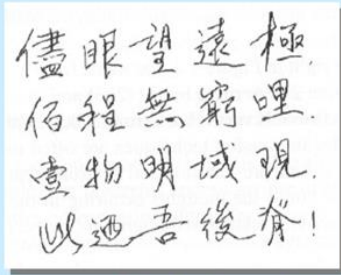 儘眼望遠極.
佰程無窮哩
壹物明域現.
此迺吾後脊!